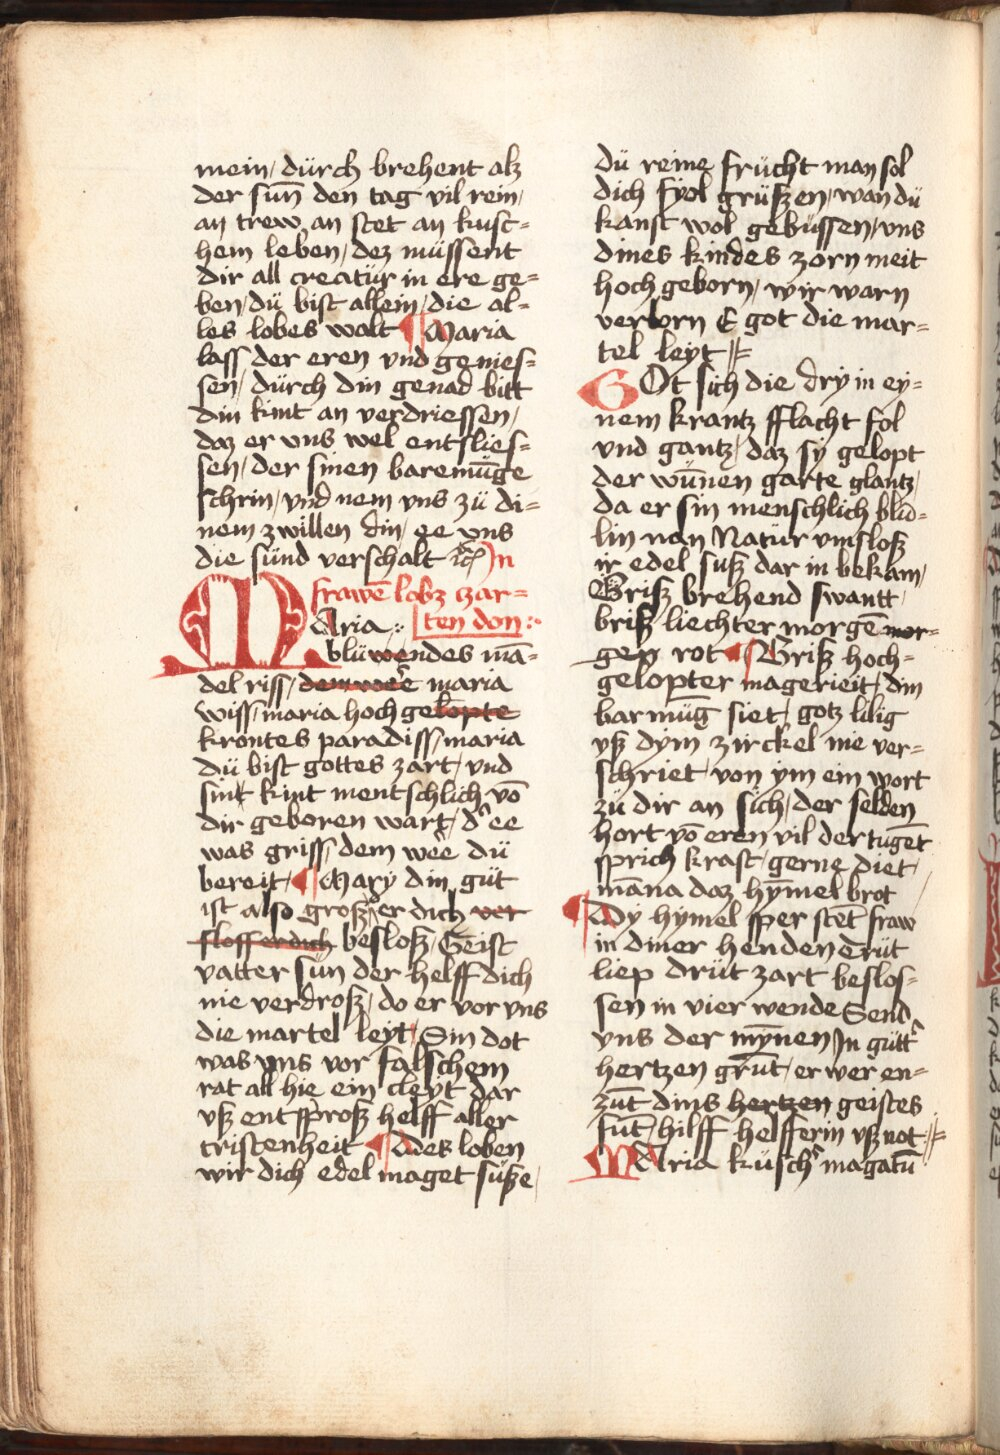 mein / dürch brehent alz
der sun̄ den tag vil rein /
an trew an stet an kusc=
hem leben / dez müssent
dir all creatür in ere ge=
ben / dü bist allein / die al=
les lobes walt ¶ Maria
lass der eren vnd genies=
sen / dürch din genad bitt
din kint an verdriessen /
daz er vns wel entslies=
sen / der sinen baremūge
schrin / vnd nem vns zü di=
nem zwillen din / ee vns
die sünd verschalt ꝛc̄ In
frawē lobz zar=
MAria / ten don :
blüwendes mā=
del riss / dem wee maria
wiss / maria hoch gelopte
krontes paradiss / maria
dü bist gottes zart / vnd
sint kint mentschlich vō
dir geboren wart / d' ee
was griss / dem wee dü
bereit / ¶ Mary din güt
ist also groß / er dich ver
sloss er dich besloß / Geist
vatter sün der helff dich
nie verdroß / do er vor vns
die martel leyt / Sin dot
was vns vor falschem
rat all hie ein cleyt dar
vß entsproß helff aller
cristenheit ¶ Des loben
wir dich edel maget süße /
dü reine frücht man sol
dich fyol grüßen / wan dü
kanst wol gebüssen / vns
dines kindes zorn meit
hoch geborn / wir warn
verlorn E got die mar=
tel leyt //=
GOt sich die dry in ey=
nem krantz fflacht fol
vnd gantz / daz sy gelopt
der wūnen garte glantz /
da er sin menschlich blü=
lin nan Natür vmsloß
ir edel suß dar in bekam /
Griß brehend swantt /
briß liechter morgē mor=
gen rot ¶ Griß hoch=
gelopter magerieit / din
barmūg siet / gotz lilig
vß dym zirckel nie ver=
schriet / von ym ein wort
zü dir an sich / der selden
hort vō eren vil der tugēt
sprich krast / gerne diet /
māna daz hȳmel brot /
¶ Dy hymel sper stet fraw
in diner henden Trüt
liep drüt zart beslos=
sen in vier wende Send
vns der mȳnen In gütt'
hertzen grūt / er wer en=
zūt dins hertzen geistes
fūt hilff helfferin vß not //=
MAria küsch' magatū